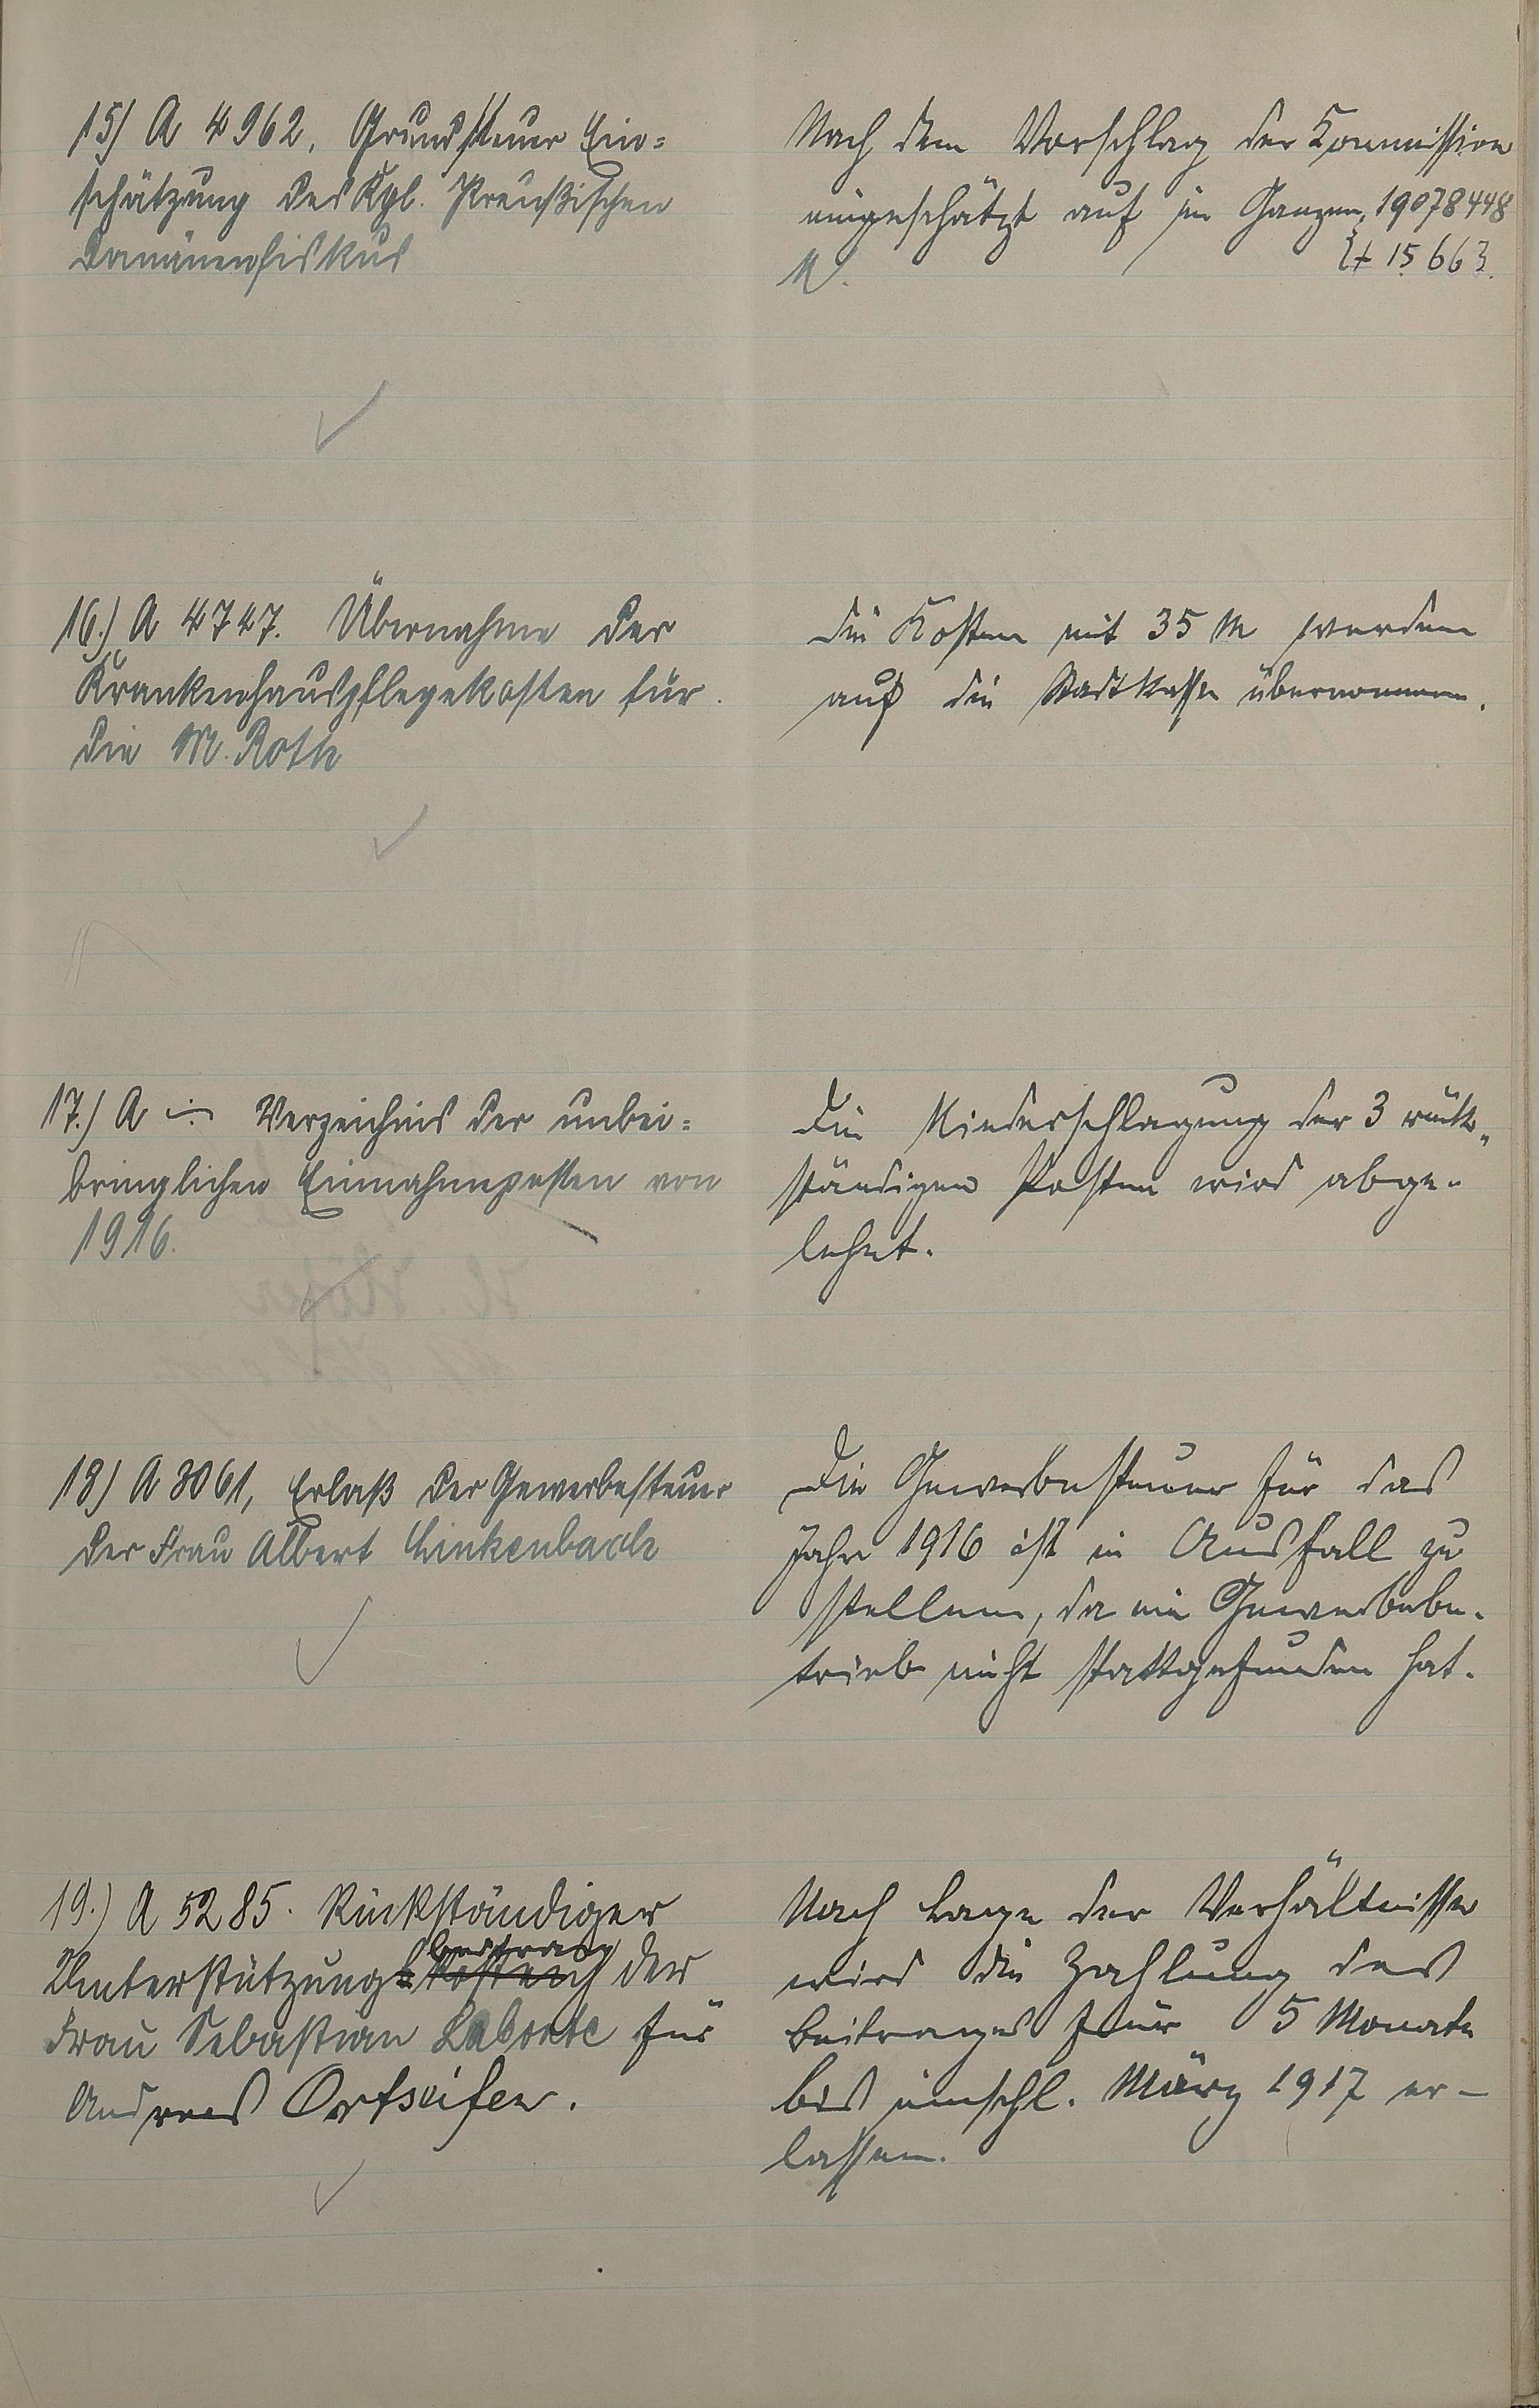 15) A 4962, Grundsteuer Ein=
schätzung des Kgl. Preußischen
Domänenfiskus
Nach dem Vorschlag der Kommission
eingeschätzt auf im Ganzen, 19078448
M. + 15 663.
16.) A 4747. Übernahme der
Krankenhauspflegekosten für
die M. Roth
Die Kosten mit 35 M werden
auf die Stadtkasse übernommen.
17.) A ÷ Verzeichnis der unbei=
bringlichen Einnahmeposten von
1916.
Die Niederschlagung der 3 rück-
ständigen Posten wird abge-
lehnt.
18) A 3061, Erlaß der Gewerbesteuer
der Frau Albert Linkenbach
Die Gewerbesteuer für das
Jahr 1916 ist in Ausfall zu
stellen, da ein Gewerbebe-
trieb nicht stattgefunden hat.
19.) A 5285. Rückständiger
Unterstützungsbeitrag der
Frau Sebastian Labonte für
Andreas Ortseifen.
Nach Lage der Verhältnisse
wird die Zahlung des
Beitrages für 5 Monate
bis einschl. März 1917 er-
lassen.